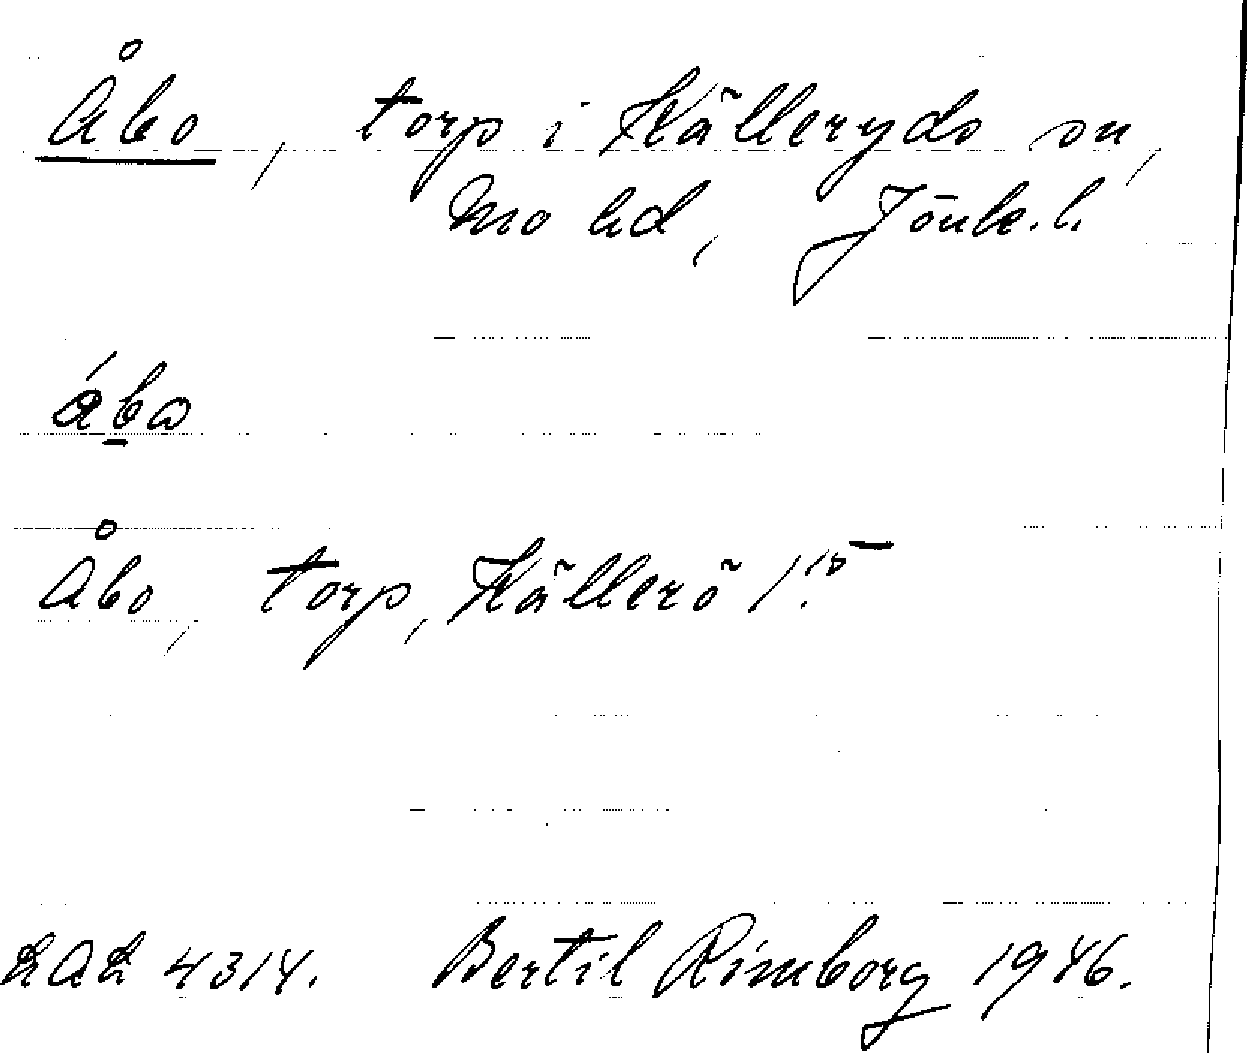 Åbo, torp i Källeryds sn,
Mo hd, Jönk. l.
ábo
Åbo, torp, Källerö 1:15
LAL 4314. Bertil Rimborg 1946.